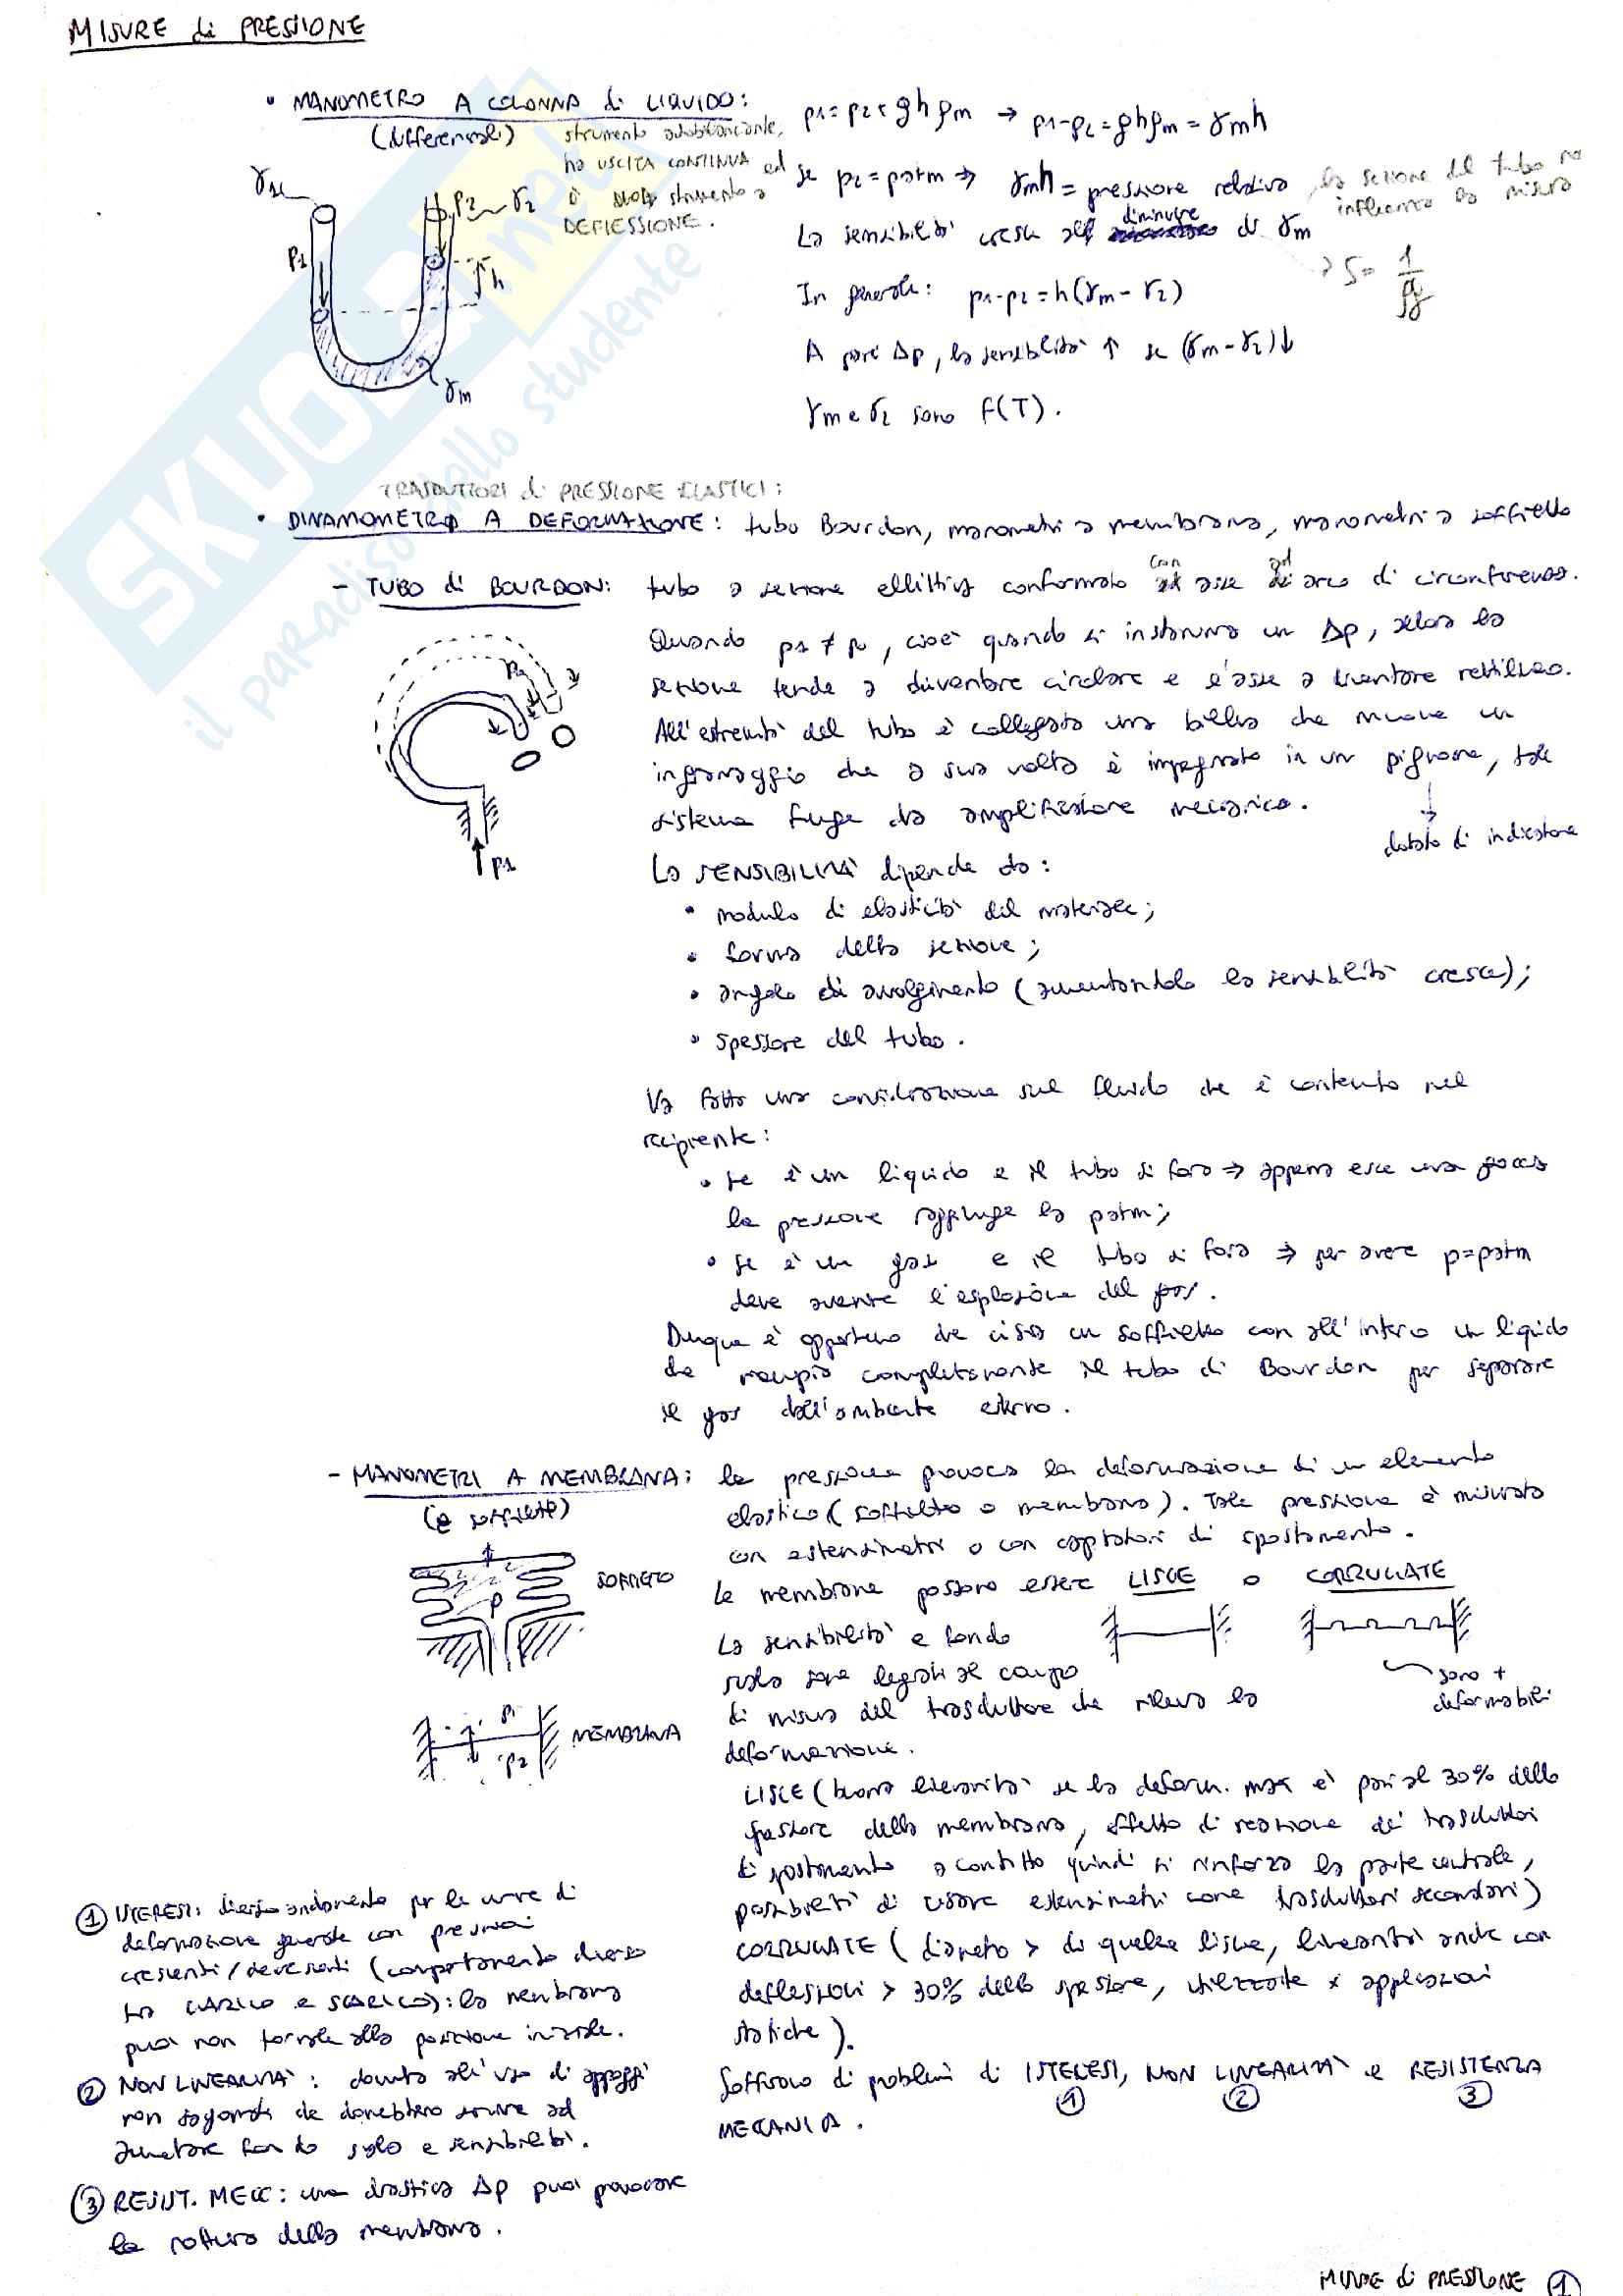 MISURE di PRESSIONE
• MANOMETRO A COLONNA di LIQUIDO:
(differenziali)
strumento autobilanciante,
ha USCITA CONTINUA ed
è strumento a
DEFLESSIONE.
p1 = p2 + ghρm → p1-p2 = ghρm = γmh
se p2 = patm ⇒ γmh = pressione relativa, la sezione del tubo no
influenza la misura
La sensibilità cresce al diminuire di γm
→ S = 1/ρg
In generale: p1-p2 = h(γm - γ2)
A pari Δp, la sensibilità ↑ se (γm-γ2)↓
γm e γ2 sono f(T).
p1
p2
γ2
h
γm
SKUOLA.net
il paradiso dello studente
TRASDUTTORI di PRESSIONE ELASTICI:
• DINAMOMETRO A DEFORMAZIONE: tubo Bourdon, manometri a membrana, manometri a soffietto
- TUBO di BOURDON: tubo a sezione ellittica conformato con asse ad arco di circonferenza.
Quando p1 ≠ p0, cioè quando si instaura un Δp, allora la
sezione tende a diventare circolare e l'asse a diventare rettilineo.
All'estremità del tubo è collegata una biella che muove un
ingranaggio che a sua volta è impegnato in un pignone, tale
sistema funge da amplificatore meccanico.
dotato di indicatore
p0
p1
La SENSIBILITÀ dipende da:
• modulo di elasticità del materiale;
• forma della sezione;
• angolo di avvolgimento (aumentandolo la sensibilità cresce);
• spessore del tubo.
Va fatta una considerazione sul fluido che è contenuto nel
recipiente:
• se è un liquido e il tubo si fora ⇒ appena esce una goccia
la pressione raggiunge la patm;
• se è un gas e il tubo si fora ⇒ per avere p=patm
deve avvenire l'esplosione del gas.
Dunque è opportuno che ci sia un soffietto con all'interno un liquido
che riempia completamente il tubo di Bourdon per separare
il gas dall'ambiente esterno.
- MANOMETRI A MEMBRANA:
(e soffietto)
la pressione provoca la deformazione di un elemento
elastico (soffietto o membrana). Tale pressione è misurata
con estensimetri o con captatori di spostamento.
Le membrane possono essere LISCE o CORRUGATE
sono +
deformabili
SOFFIETTO
p
p1
p2
MEMBRANA
La sensibilità e fondo
scala sono legati al campo
di misura del trasduttore che rileva la
deformazione.
LISCE (buona linearità se la deform. max è pari al 30% dello
spessore della membrana, effetto di reazione dei trasduttori
di spostamento a contatto quindi si rinforza la parte centrale,
possibilità di usare estensimetri come trasduttori secondari)
CORRUGATE (diametro > di quelle lisce, linearità anche con
deflessioni > 30% dello spessore, utilizzate x applicazioni
statiche).
Soffrono di problemi di ISTERESI, NON LINEARITÀ e RESISTENZA
MECCANICA.
① ② ③
① ISTERESI: diverso andamento per le curve di
deformazione generate con pressioni
crescenti/decrescenti (comportamento diverso
tra CARICO e SCARICO): la membrana
può non tornare alla posizione iniziale.
② NON LINEARITÀ: dovuta all'uso di appoggi
non sagomati che dovrebbero servire ad
aumentare fondo scala e sensibilità.
③ RESIST. MECC: una drastica Δp può provocare
la rottura della membrana.
MISURE di PRESSIONE ①